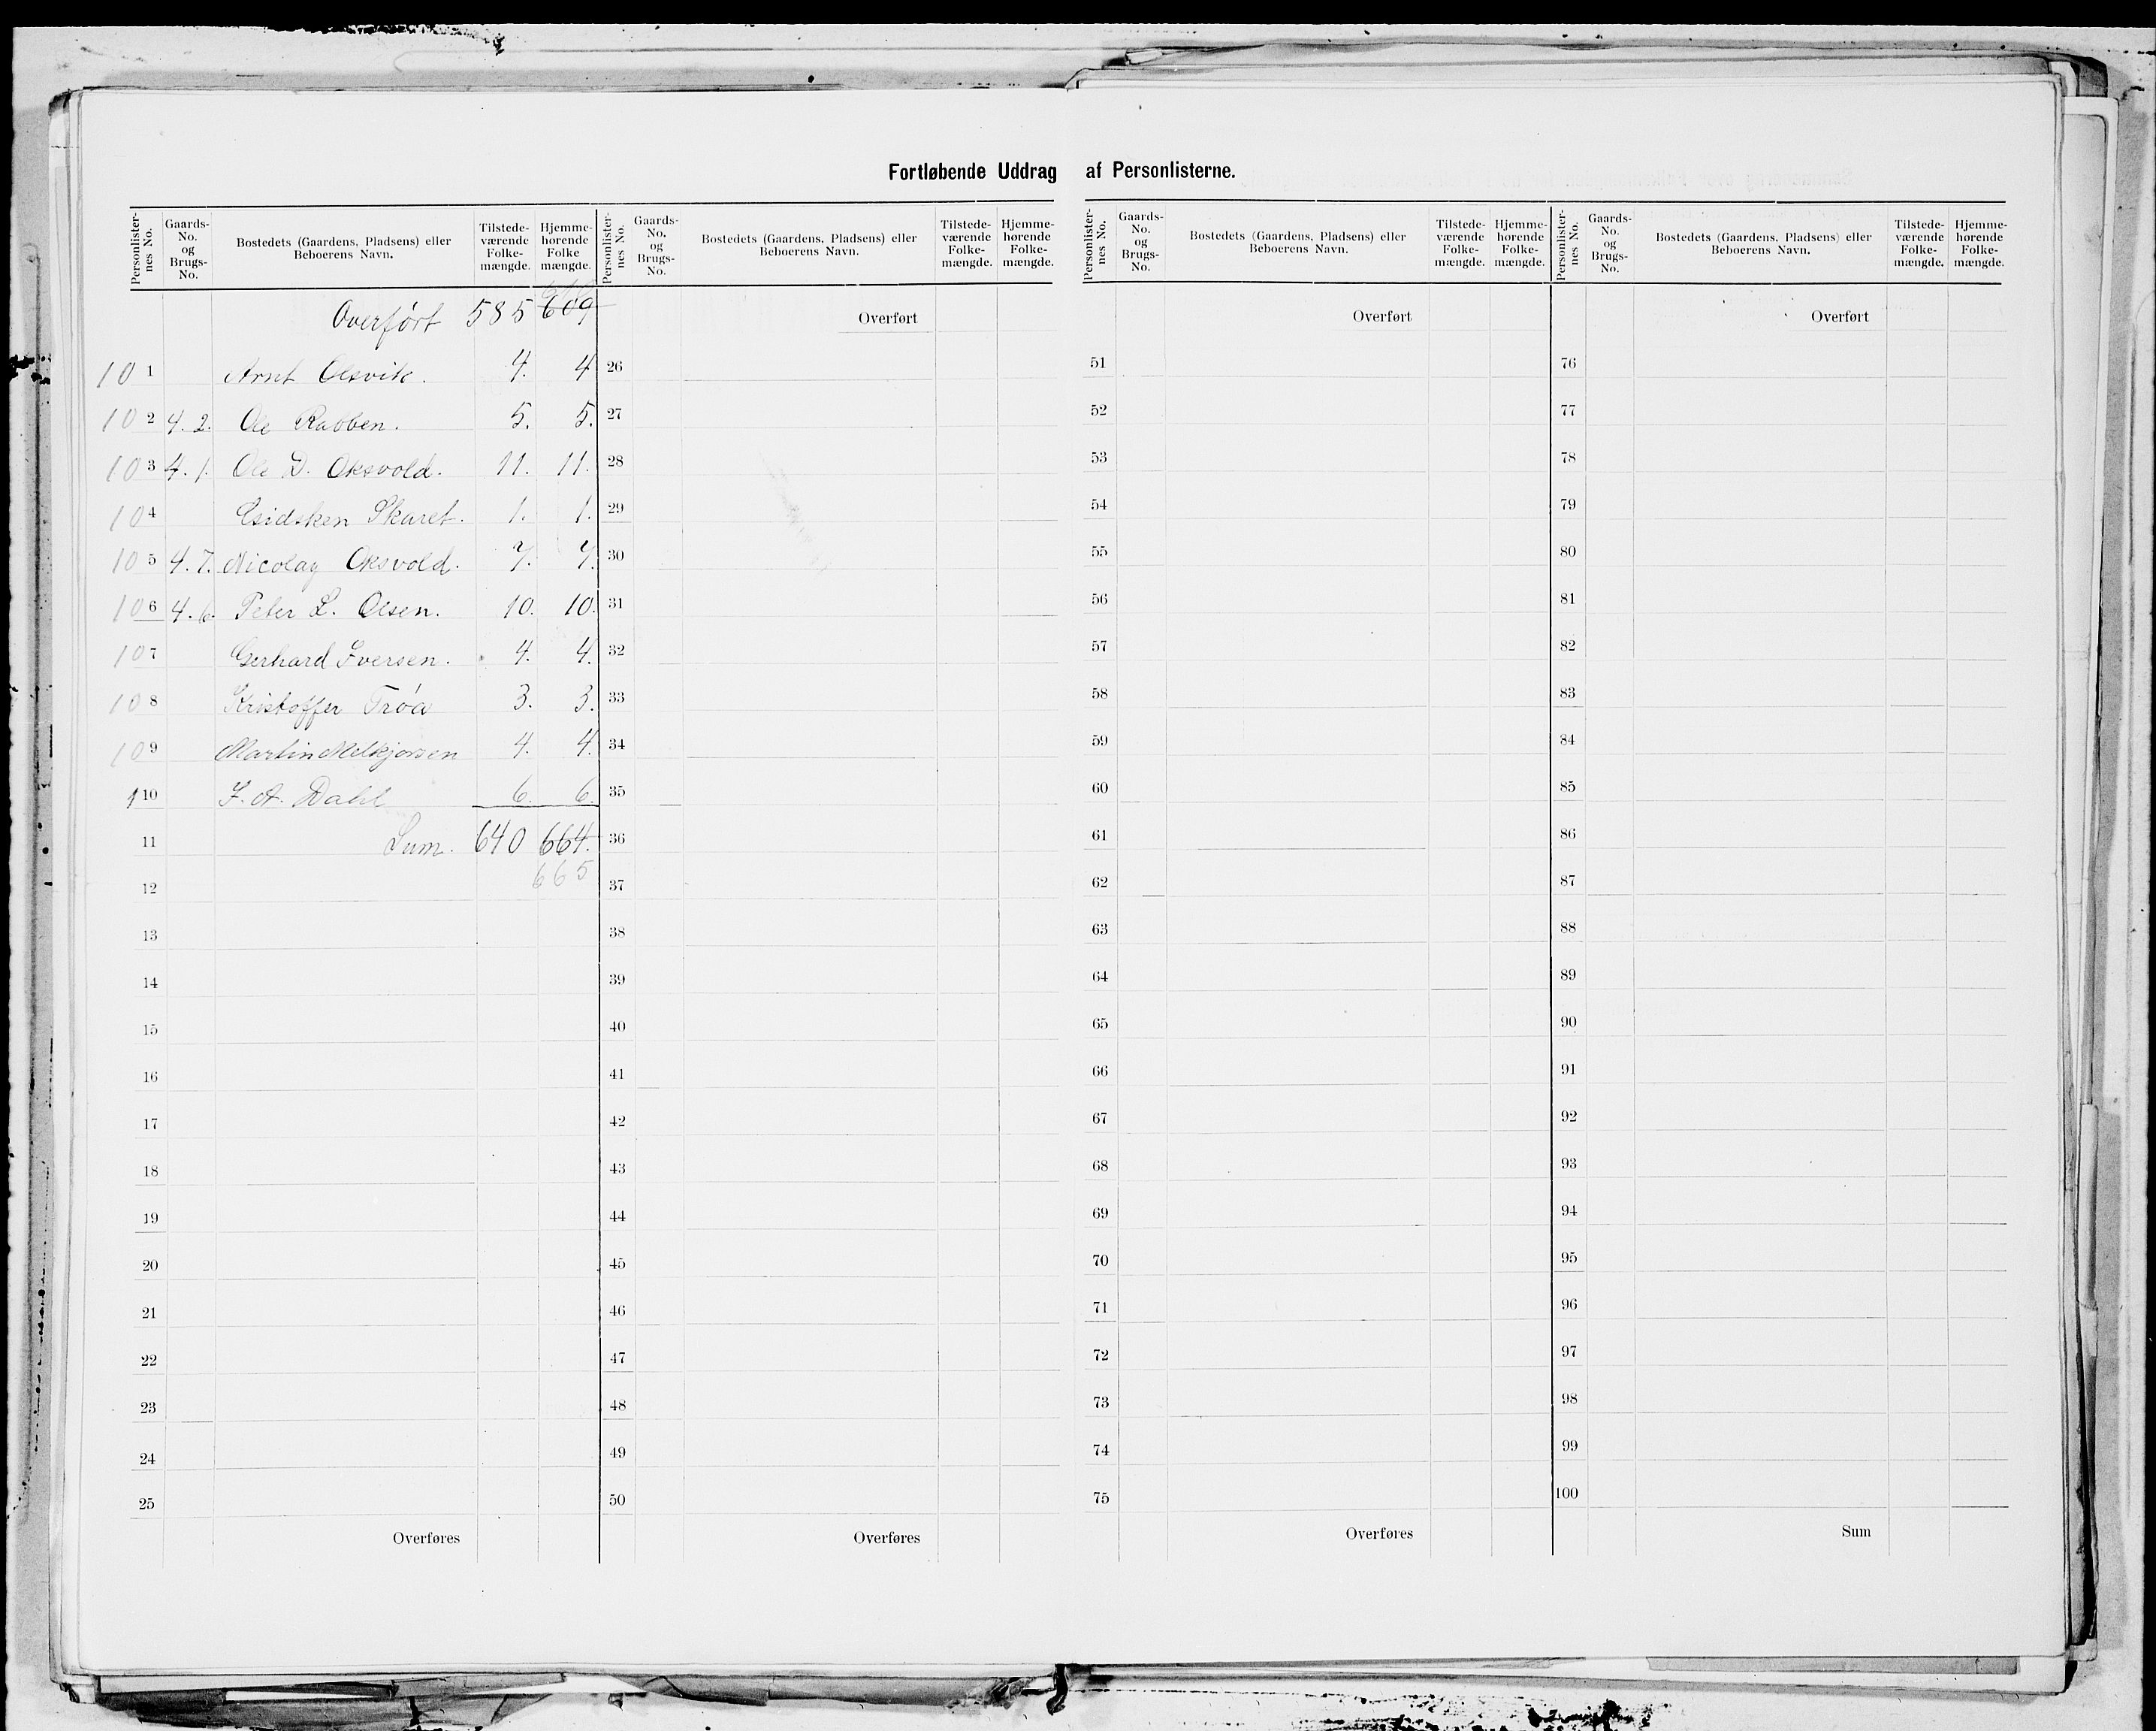 Fortløbende Uddrag af Personlisterne.
Personlister-nes No. | Gaards-No. og Brugs-No. | Bostedets (Gaardens, Pladsens) eller Beboerens Navn. | Tilstede-værende Folke-mængde. | Hjemme-hørende Folke mængde.
Overført 585 609
10 1 Arnt Olsvik. 4. 4
10 2 4. 2. Ole Rabben. 5. 5.
10 3 4. 1. Ole D. Oksvold. 11. 11.
10 4 Skaret. 1. 1.
10 5 4. 7. Nicolay Oksvold. 7. 7.
10 6 4. 6. Peter L. Olsen. 10. 10.
10 7 Gerhard Iversen. 4. 4.
10 8 Kristoffer Trøa 3. 3.
10 9 Martin Melkjorsen 4. 4.
1 10 A. Dahl 6. 6.
11 Sum. 640 664.
12 665
13
14
15
16
17
18
19
20
21
22
23
24
25
Overføres
Personlister-nes No. | Gaards-No. og Brugs-No. | Bostedets (Gaardens, Pladsens) eller Beboerens Navn. | Tilstede-værende Folke-mængde. | Hjemme-hørende Folke-mængde.
Overført
26
27
28
29
30
31
32
33
34
35
36
37
38
39
40
41
42
43
44
45
46
47
48
49
50
Overføres
Personlister-nes No. | Gaards-No. og Brugs-No. | Bostedets (Gaardens, Pladsens) eller Beboerens Navn. | Tilstede-værende Folke-mængde. | Hjemme-hørende Folke-mængde.
Overført
51
52
53
54
55
56
57
58
59
60
61
62
63
64
65
66
67
68
69
70
71
72
73
74
75
Overføres
Personlister-nes No. | Gaards-No. og Brugs-No. | Bostedets (Gaardens, Pladsens) eller Beboerens Navn. | Tilstede-værende Folke-mængde. | Hjemme-hørende Folke-mængde.
Overført
76
77
78
79
80
81
82
83
84
85
86
87
88
89
90
91
92
93
94
95
96
97
98
99
100
Sum